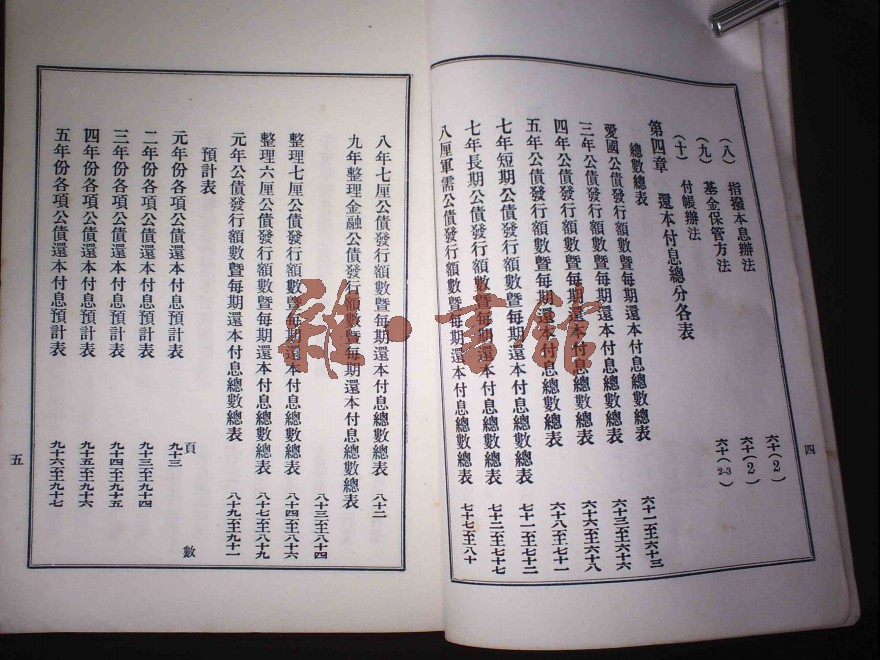 (八) 指撥本息辦法 六十(2)
(九) 基金保管方法 六十(2)
(十) 付帳辦法 六十(2-3)
第四章 還本付息總分各表
總數總表
愛國公債發行額數暨每期還本付息總數總表 六十一至六十三
三年公債發行額數暨每期還本付息總數總表 六十三至六十六
四年公債發行額數暨每期還本付息總數總表 六十六至六十八
五年公債發行額數暨每期還本付息總數總表 六十八至七十一
七年短期公債發行額數暨每期還本付息總數總表 七十一至七十二
七年長期公債發行額數暨每期還本付息總數總表 七十二至七十七
八厘軍需公債發行額數暨每期還本付息總數總表 七十七至八十
四
八年七厘公債發行額數暨每期還本付息總數總表 八十二
九年整理金融公債發行額數暨每期還本付息總數總表
八十三至八十四
整理七厘公債發行額數暨每期還本付息總數總表 八十四至八十六
整理六厘公債發行額數暨每期還本付息總數總表 八十七至八十九
元年公債發行額數暨每期還本付息總數總表 八十九至九十一
預計表
頁數
元年份各項公債還本付息預計表 九十三
二年份各項公債還本付息預計表 九十三至九十四
三年份各項公債還本付息預計表 九十四至九十五
四年份各項公債還本付息預計表 九十五至九十六
五年份各項公債還本付息預計表 九十六至九十七
五
雜·書館